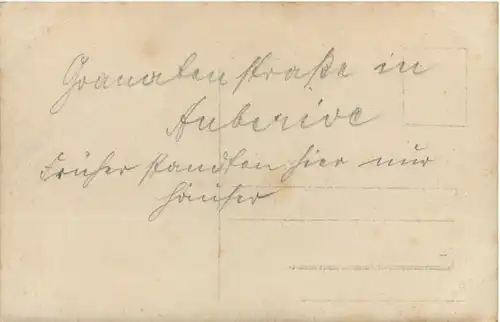 Granatenstraße in
Auberive
Früher standten hier nur
Häuser